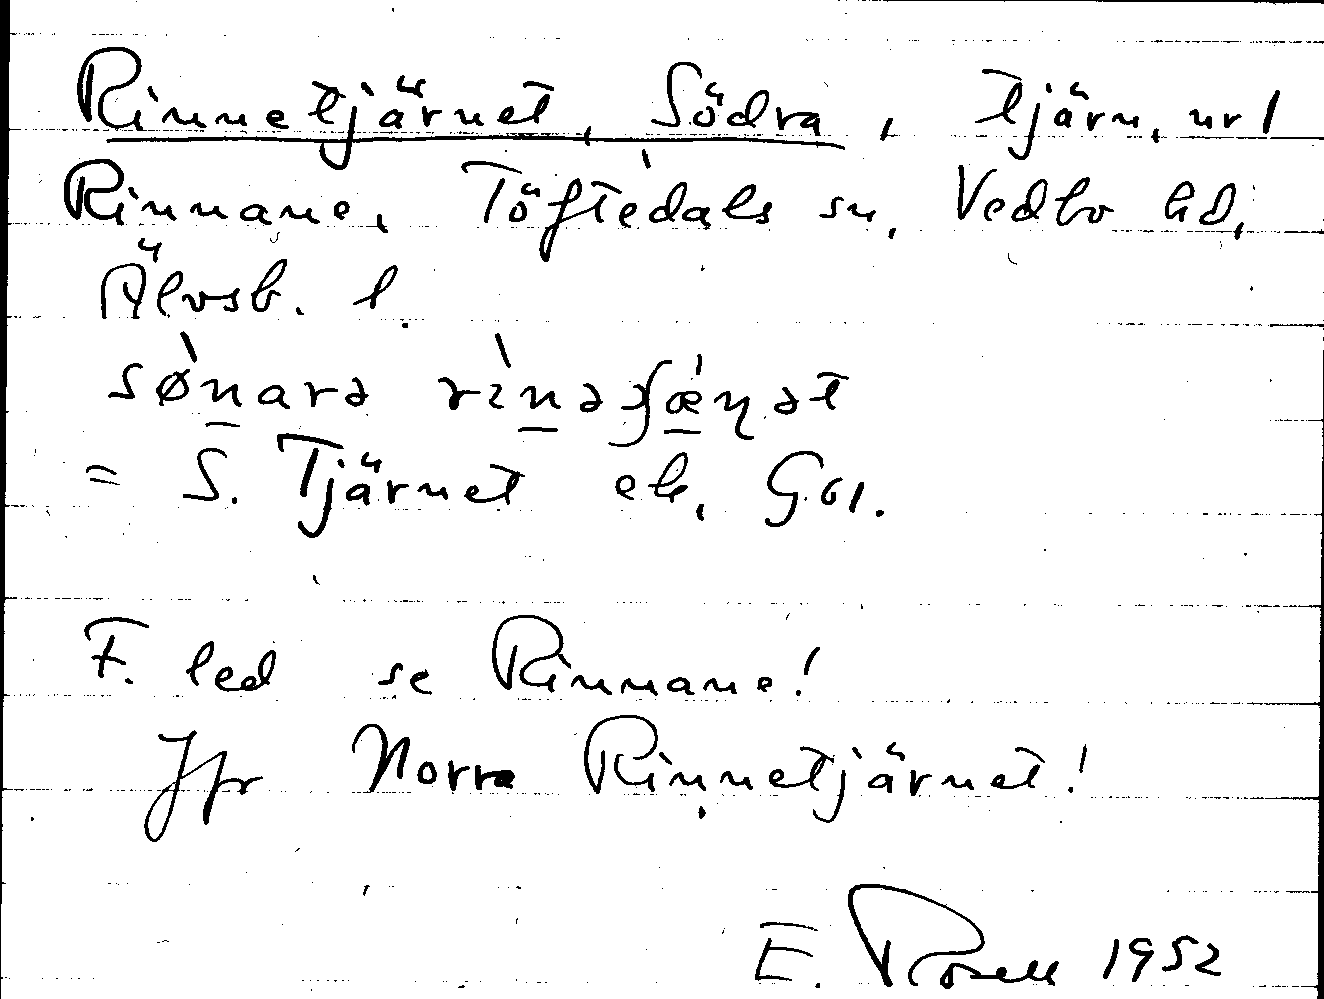 Rinnetjärnet, Södra, tjärn, nr 1
Rinnane, Töftedals sn, Vedbo hd,
Älvsb. l.
sø̀narə rìnəʃǽɳət
= S. Tjärnet ek, G61.
F. led se Rinnane!
Jfr Norra Rinnetjärnet!
E. Rosell 1952